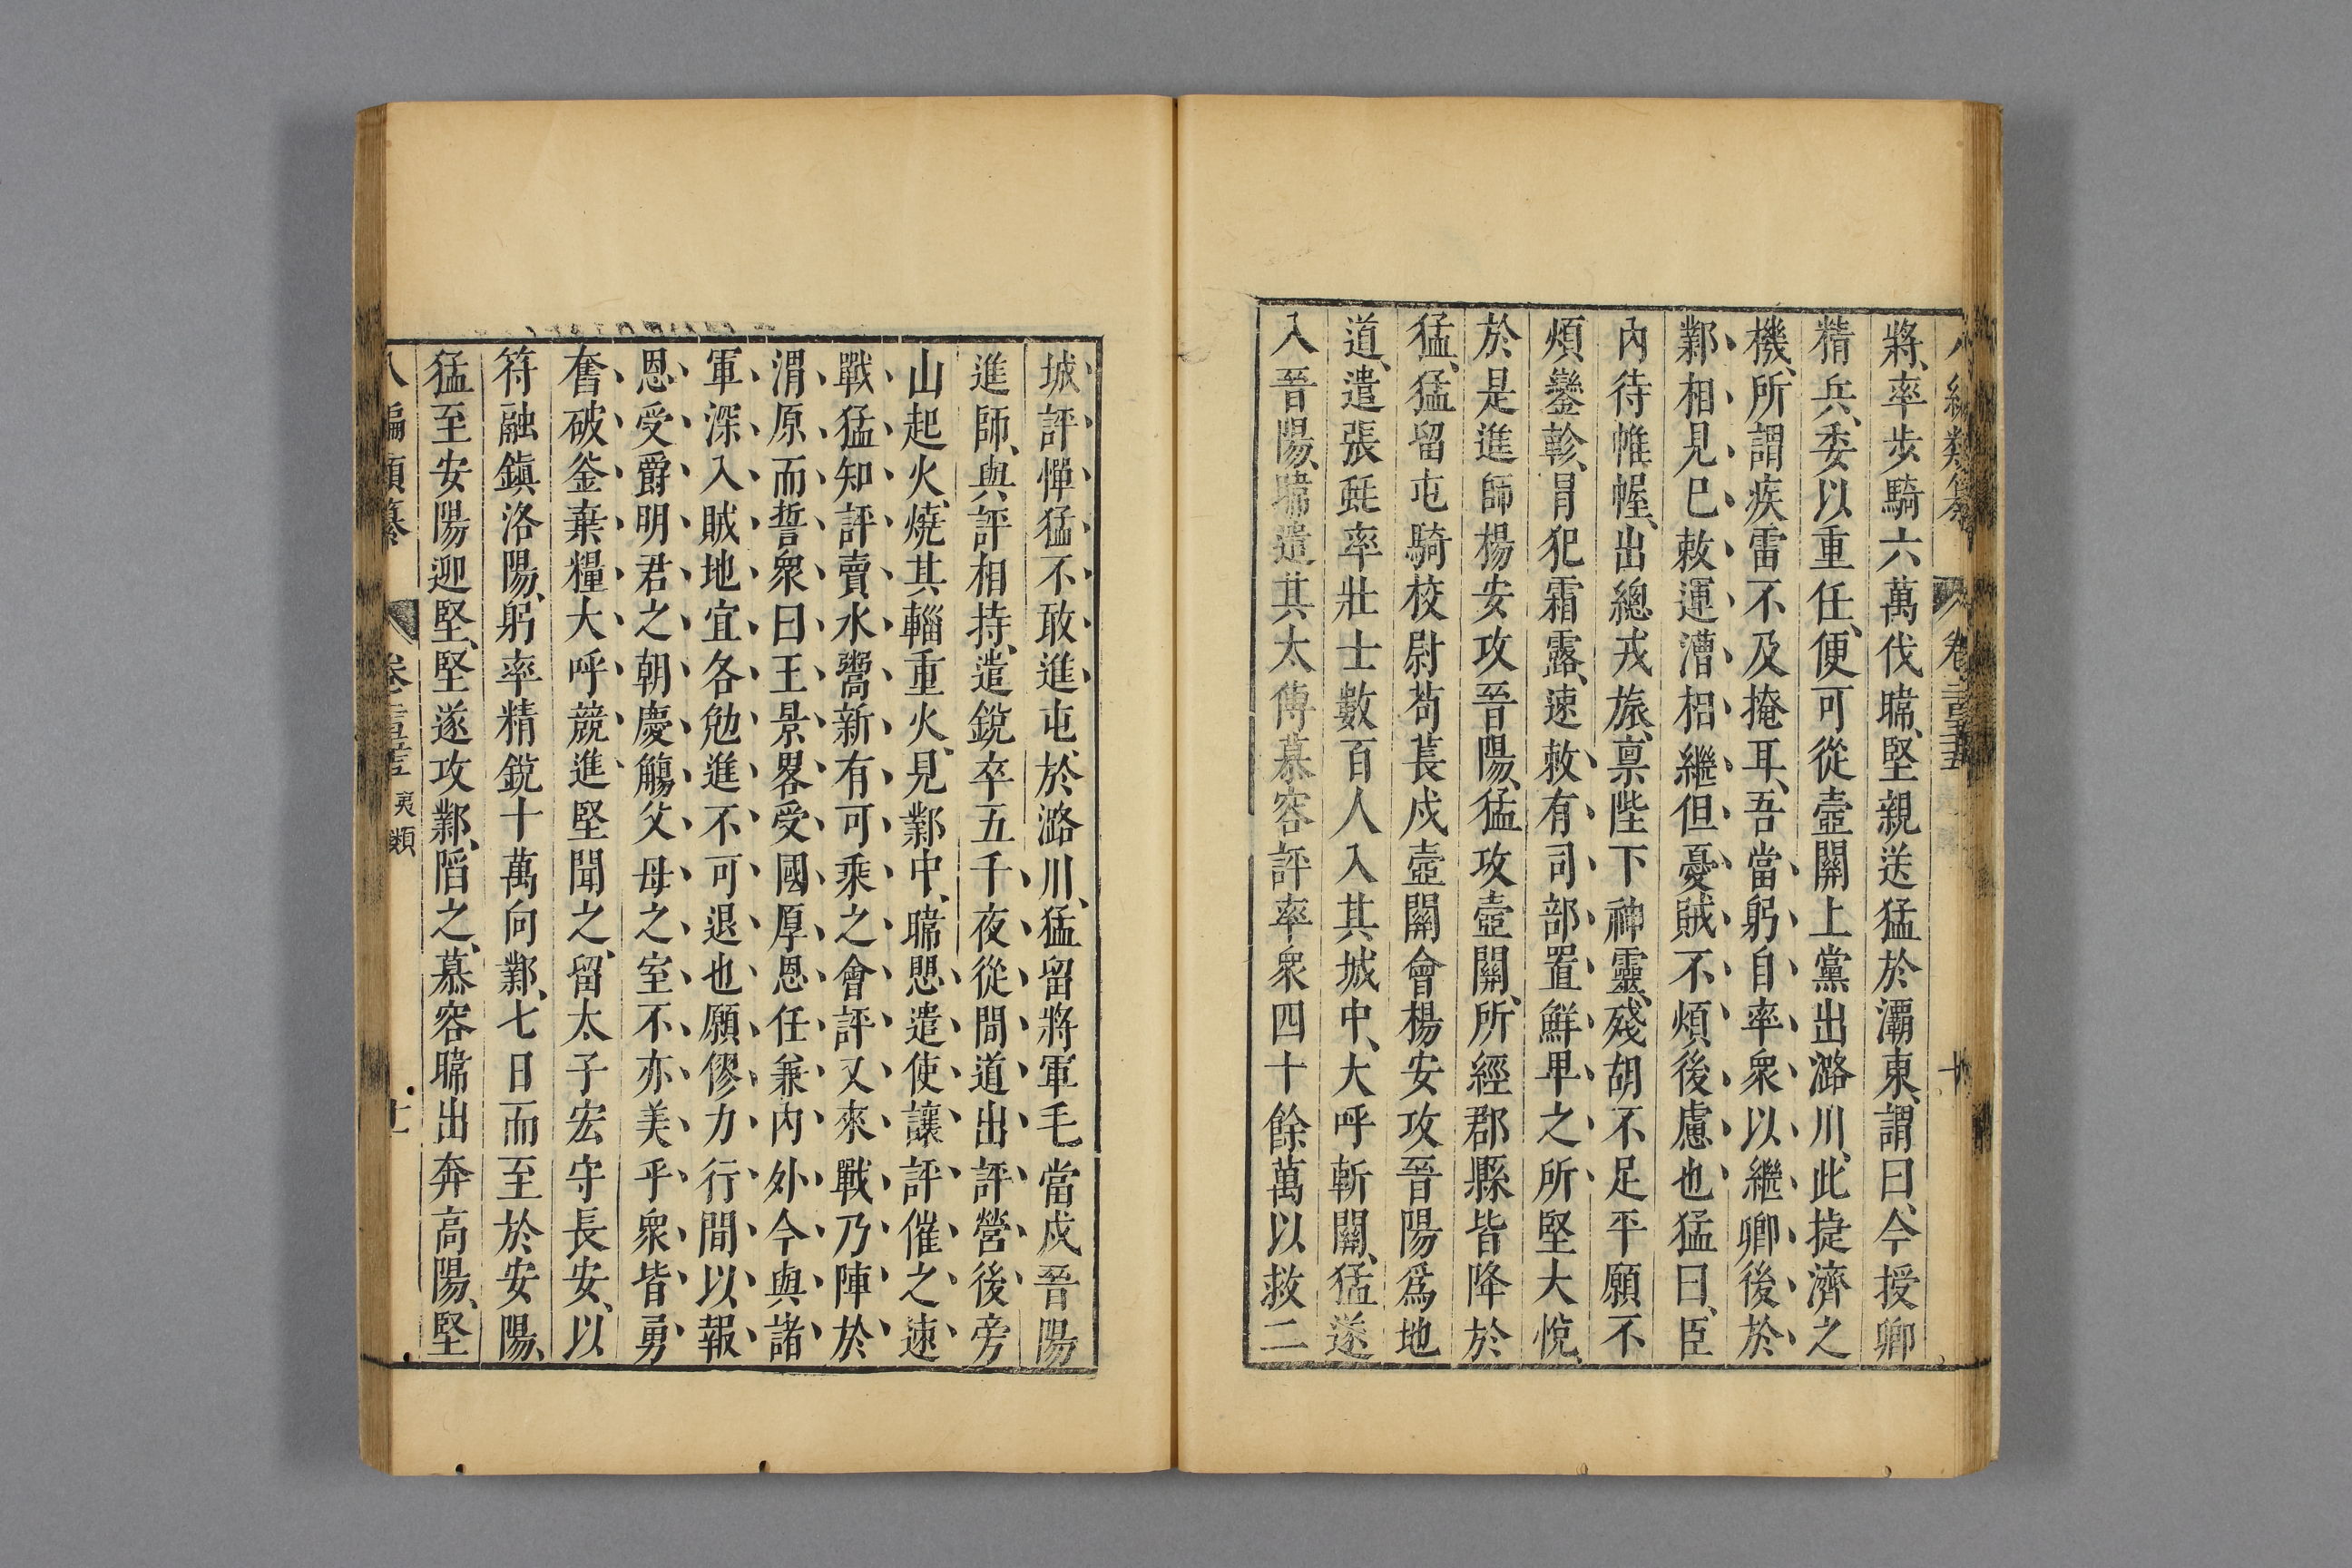 八編類纂 卷二百五十五 十
將、率步騎六萬伐暐、堅親送猛於灞東、謂曰、今授卿
精兵、委以重任、便可從壺關上黨出潞川、此捷濟之
機、所謂疾雷不及掩耳、吾當躬自率衆以繼卿後於
鄴相見已敕運漕相繼但憂賊不煩後慮也猛曰、臣
內待帷幄、出總戎旅、禀陛下神靈、殘胡不足平願不
煩鑾軫、冐犯霜露、速敕有司部置鮮卑之所堅大悅、
於是進師楊安攻晉陽、猛攻壺關、所經郡縣皆降於
猛、猛留屯騎校尉苟萇戍壺關會楊安攻晉陽爲地
道、遣張蚝率壯士數百人入其城中、大呼斬關、猛遂
入晉陽、暐遣其太傅慕容評率衆四十餘萬以救二
城評憚猛不敢進屯於潞川、猛留將軍毛當戍晉陽
進師、與評相持、遣銳卒五千夜從間道出評營後旁
山起火、燒其輜重火、見鄴中、暐愳遣使讓評催之速
戰猛知評賣水鬻薪有可乘之會評又來戰乃陣於
渭原而誓衆曰王景畧受國厚恩任兼內外今與諸
軍深入賊地宜各勉進不可退也願僇力行間以報
恩受爵明君之朝慶觴父母之室不亦美乎衆皆勇
奮破釜棄糧大呼競進堅聞之、留太子宏守長安、以
符融鎭洛陽、躬率精銳十萬向鄴、七日而至於安陽、
猛至安陽迎堅、堅遂攻鄴、陷之、慕容暐出奔高陽、堅
八編類纂 卷二百五十五 夷類 十一